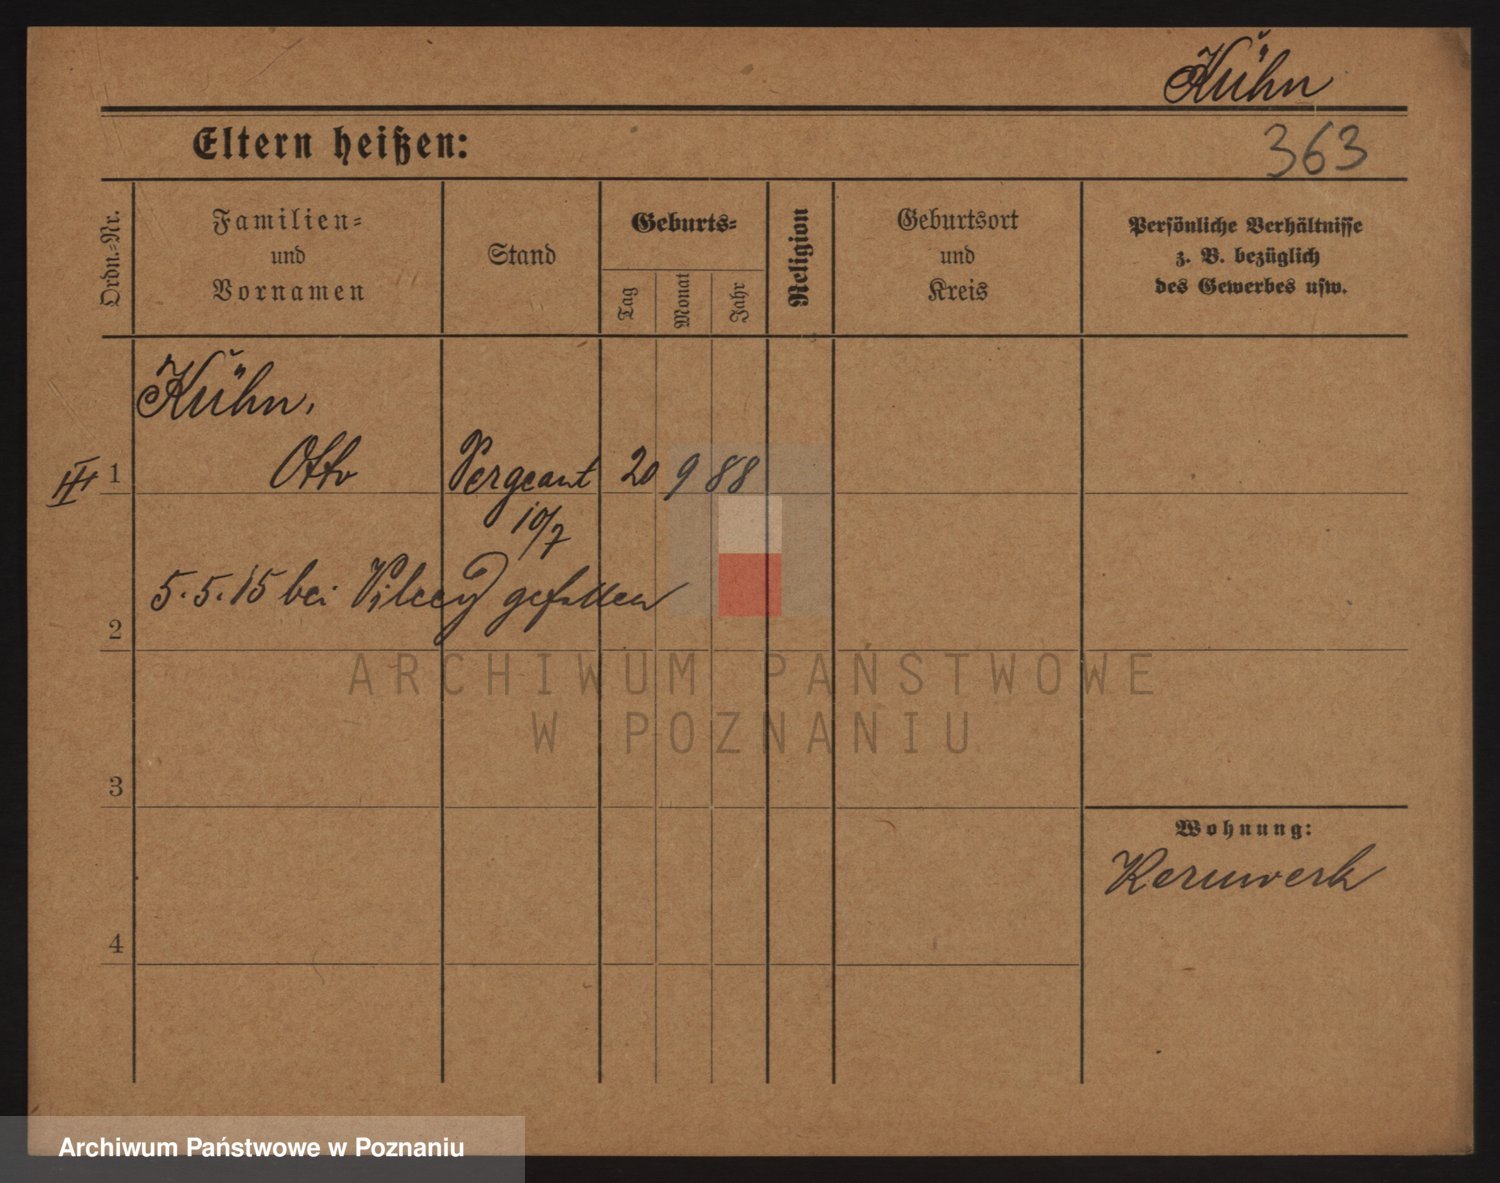 Kühn
Eltern heißen:
363
Ordn.-Nr.
Familien-
und
Vornamen
Stand
Geburts-
Tag
Monat
Jahr
Religion
Geburtsort
und
Kreis
Persönliche Verhältnisse
z. B. bezüglich
des Gewerbes usw.
Kühn,
III 1 Otto Sergeant 20 9 88
10/7
5.5.15 bei gefallen
2
ARCHIWUM PAŃSTWOWE
W POZNANIU
3
Wohnung:
Kernwerk
4
Archiwum Państwowe w Poznaniu